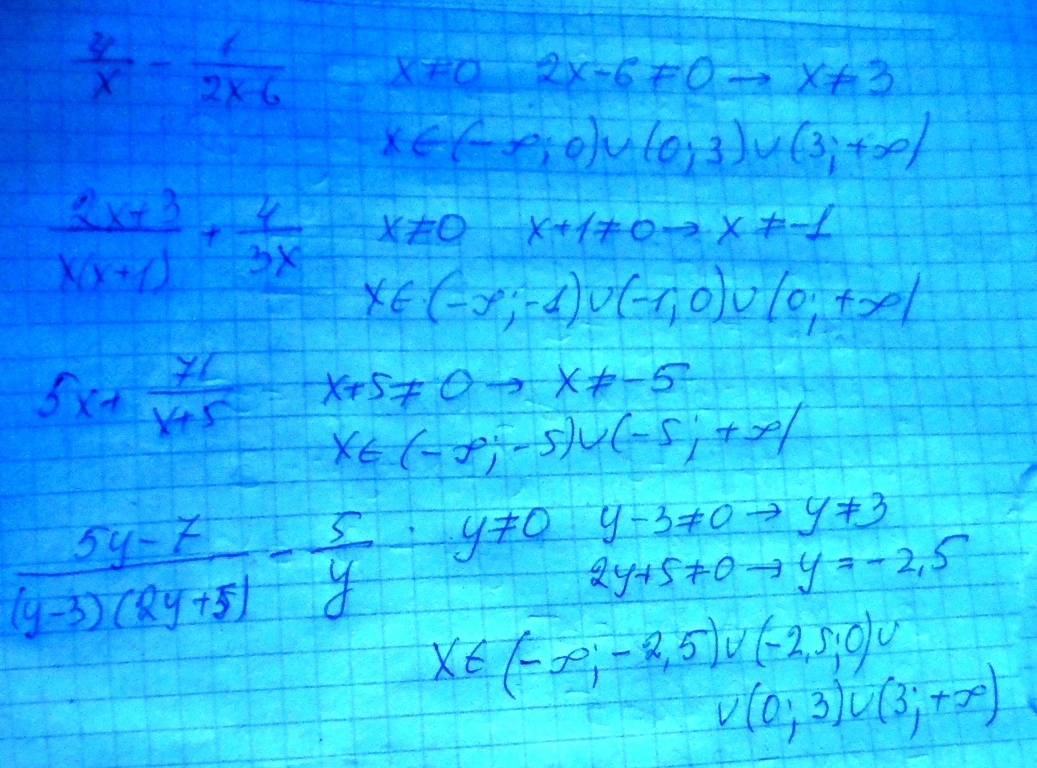 4/x - 1/(2x-6) x≠0 2x-6≠0 → x≠3
x∈(-∞; 0)∪(0; 3)∪(3; +∞)
(2x+3)/(x(x+1)) + 4/(3x) x≠0 x+1≠0 → x≠-1
x∈(-∞; -1)∪(-1; 0)∪(0; +∞)
5x + 71/(x+5) x+5≠0 → x≠-5
x∈(-∞; -5)∪(-5; +∞)
(5y-7)/((y-3)(2y+5)) - 5/y. y≠0 y-3≠0 → y≠3
2y+5≠0 → y=-2,5
x∈(-∞; -2,5)∪(-2,5; 0)∪
∪(0; 3)∪(3; +∞)